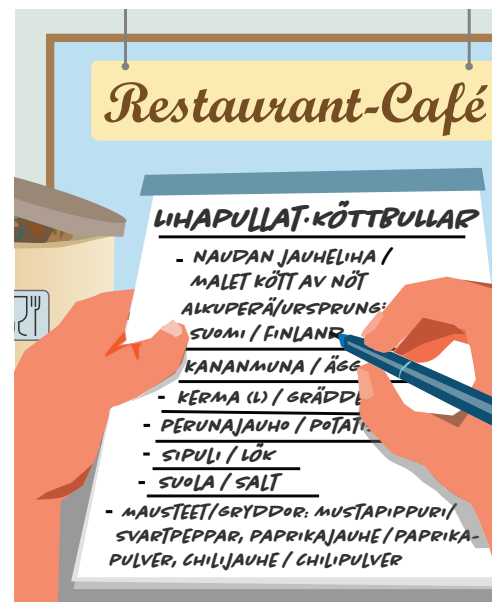 Restaurant-Café
LIHAPULLAT·KÖTTBULLAR
- NAUDAN JAUHELIHA /
MALET KÖTT AV NÖT
ALKUPERÄ/URSPRUNG:
SUOMI / FINLAND
KANANMUNA / ÄGG
- KERMA (L) / GRÄDDE
- PERUNAJAUHO / POTATI
- SIPULI / LÖK
- SUOLA / SALT
- MAUSTEET/GRYDDOR: MUSTAPIPPURI/
SVARTPEPPAR, PAPRIKAJAUHE/PAPRIKA-
PULVER, CHILIJAUHE / CHILIPULVER